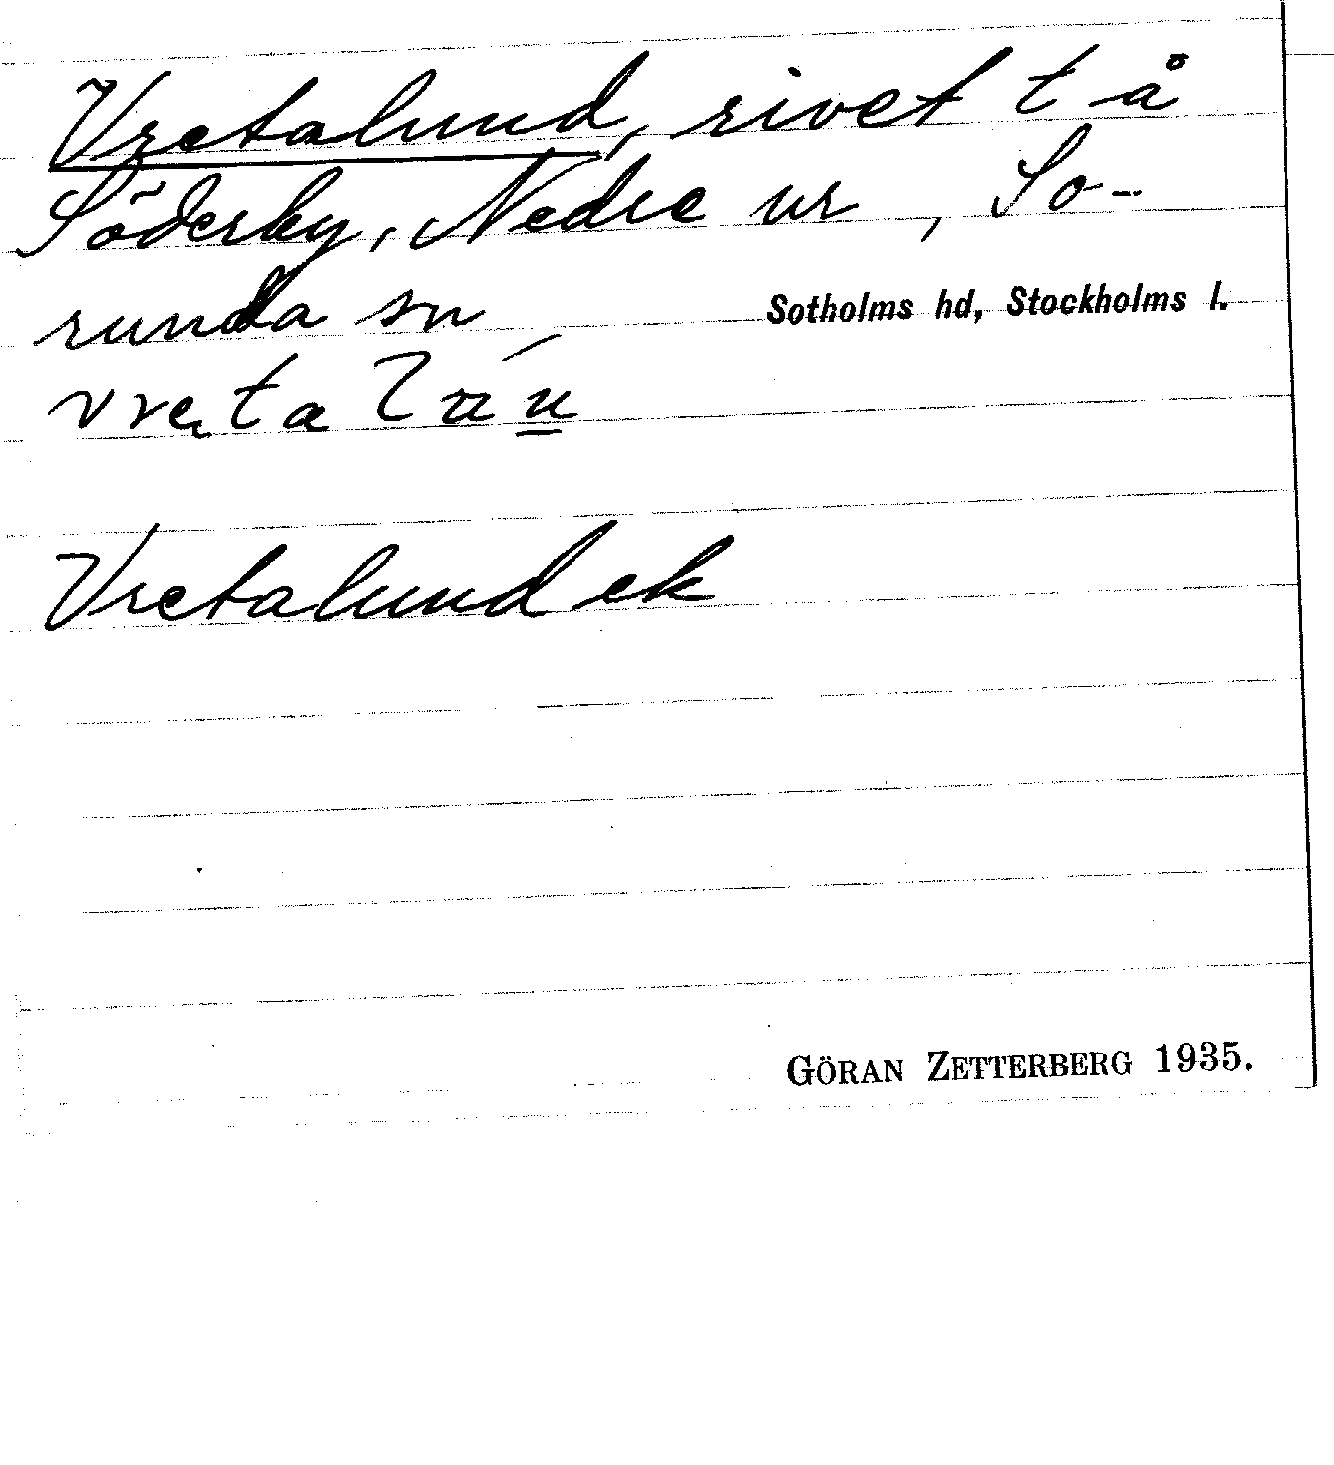 Vretalund, rivet t å
Söderby, Nedre ur , So-
runda sn Sotholms hd, Stockholms l.
Vretalund ek
GÖRAN ZETTERBERG 1935.